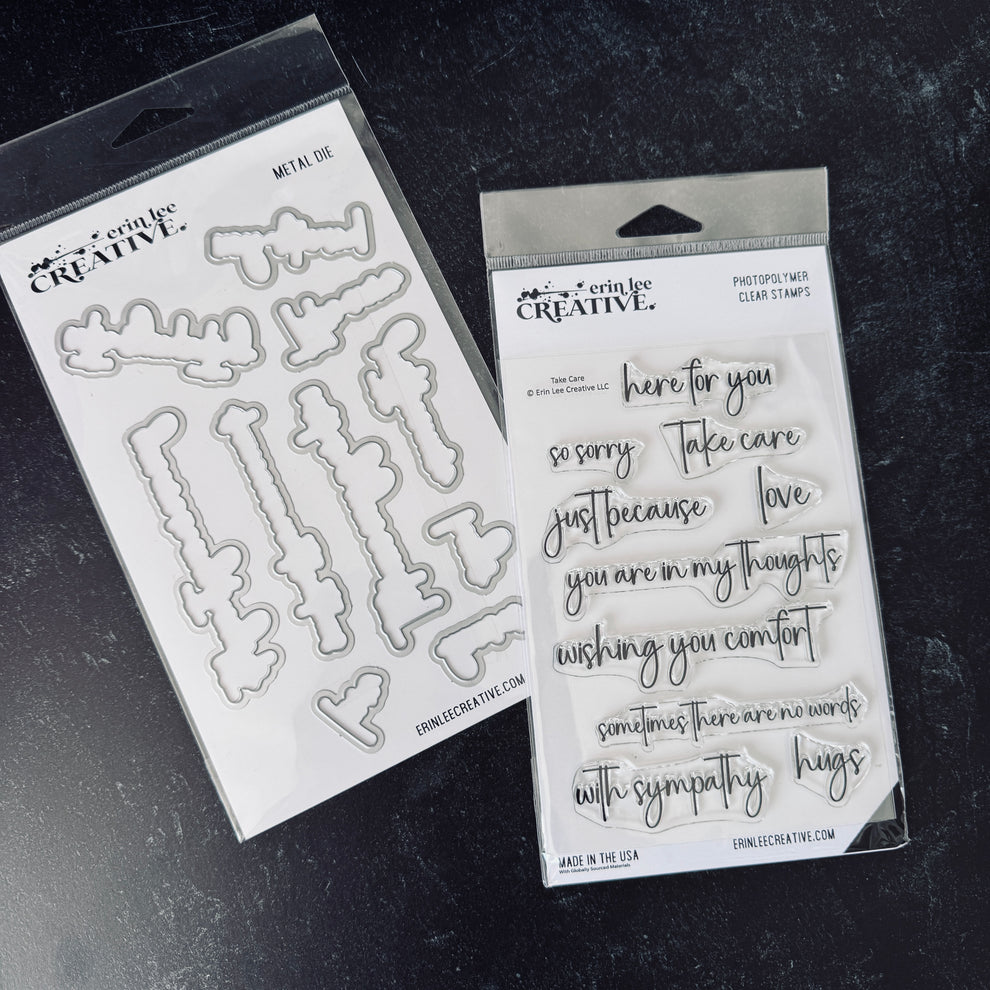 METAL DIE
erin lee
CREATIVE.
ERINLEECREATIVE.COM
erin lee
CREATIVE.
PHOTOPOLYMER
CLEAR STAMPS
Take Care
© Erin Lee Creative LLC
here for you
so sorry
Take care
just because
love
you are in my thoughts
wishing you comfort
sometimes there are no words
with sympathy
hugs
ERINLEECREATIVE.COM
MADE IN THE USA
With Globally Sourced Materials